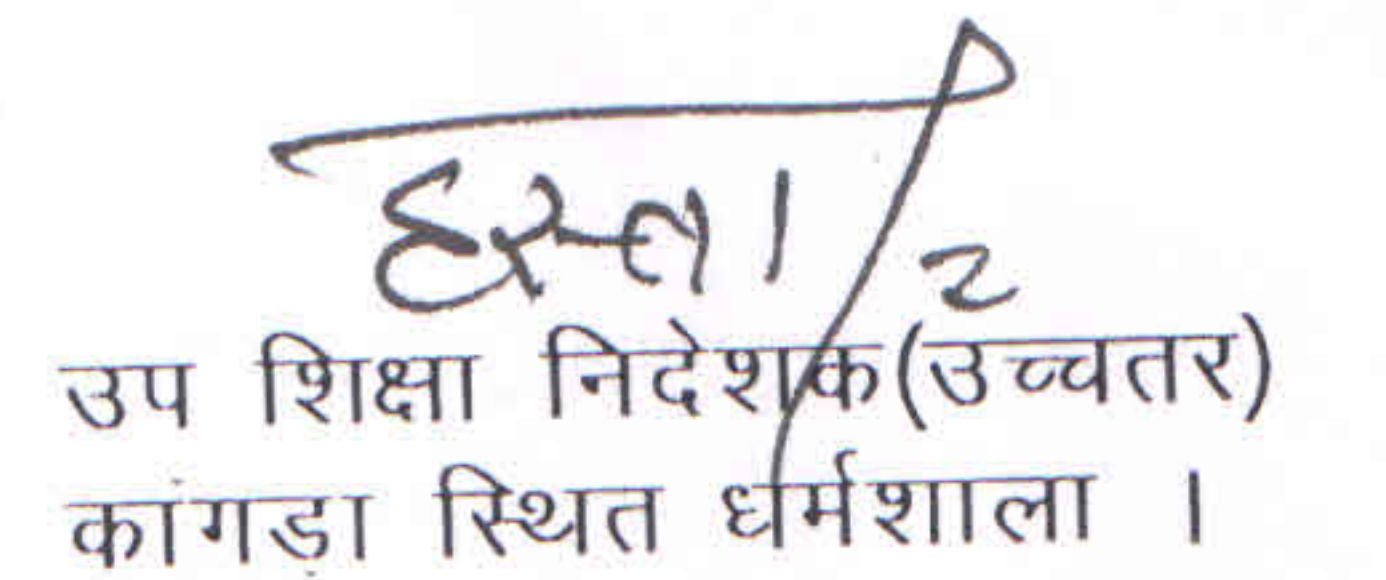 हस्ता/2
उप शिक्षा निदेशक(उच्चतर)
कांगड़ा स्थित धर्मशाला ।